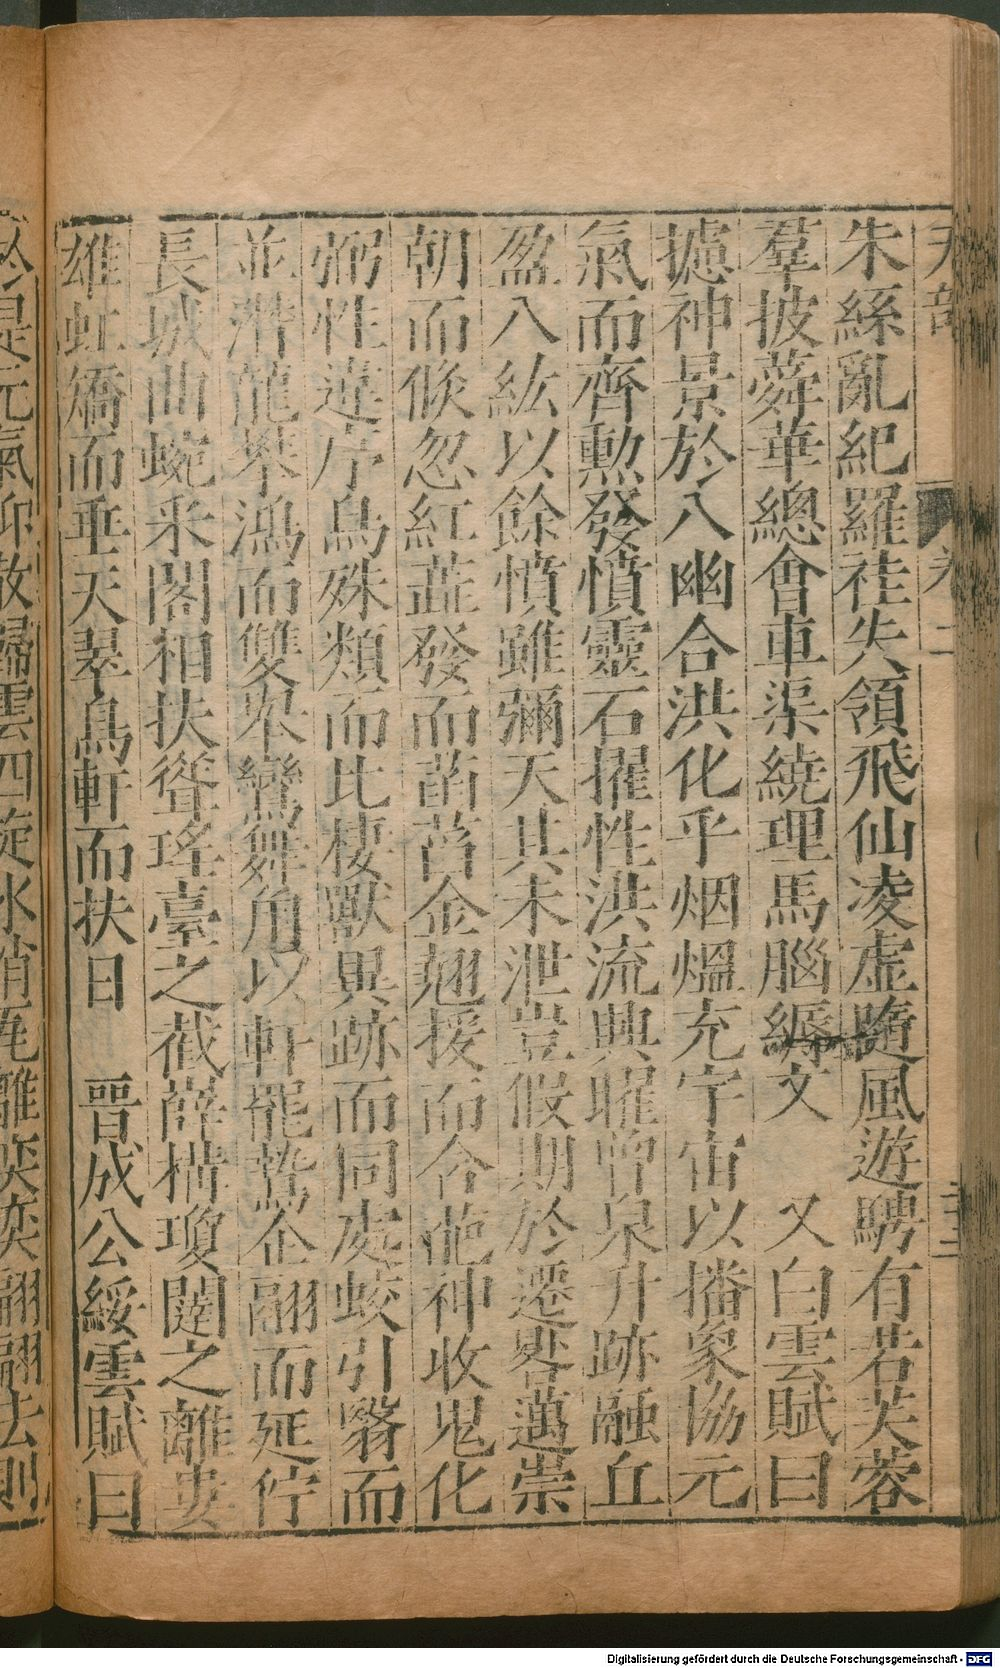 天部 卷二 三三
朱絲亂紀羅袿失領飛仙凌虛隨風遊騁有若芙蓉
羣披蕣華總會車渠繞理馬腦縟文 又白雲賦曰
攄神景於八幽合洪化乎烟熅充宇宙以播象協元
氣而齊勲發憤靈石擢性洪流興曜曾泉升跡融丘
盈八紘以餘憤雖彌天其未泄豈假期於遷晷邁崇
朝而倐忽紅蘂發而菡萏金翹援而含葩神收鬼化
弼性違序鳥殊類而比棲獸異跡而同處蛟引翳而
並潛龍舉鴻而雙舉鸞舞角以軒罷鷙企翮而延佇
長城曲蜿采閣相扶聳瑤臺之截嶭構瓊闥之離婁
雄虹矯而垂天翠鳥軒而扶日 晉成公綏雲賦曰
於是元氣仰散歸雲四旋冰消瓦離奕奕翩翩去則
Digitalisierung gefördert durch die Deutsche Forschungsgemeinschaft - DFG